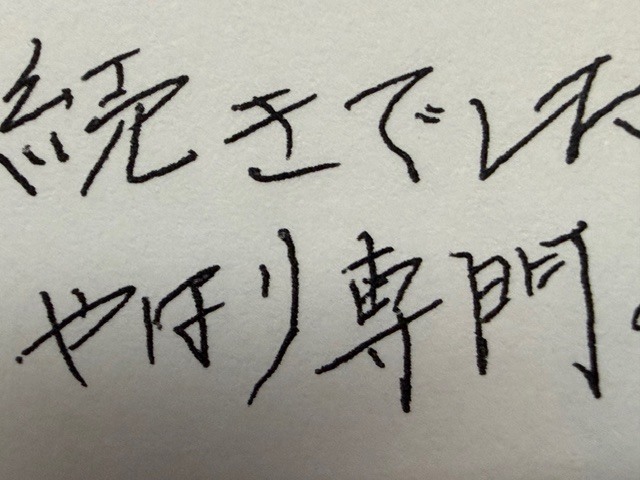 続きでした
やはり専門